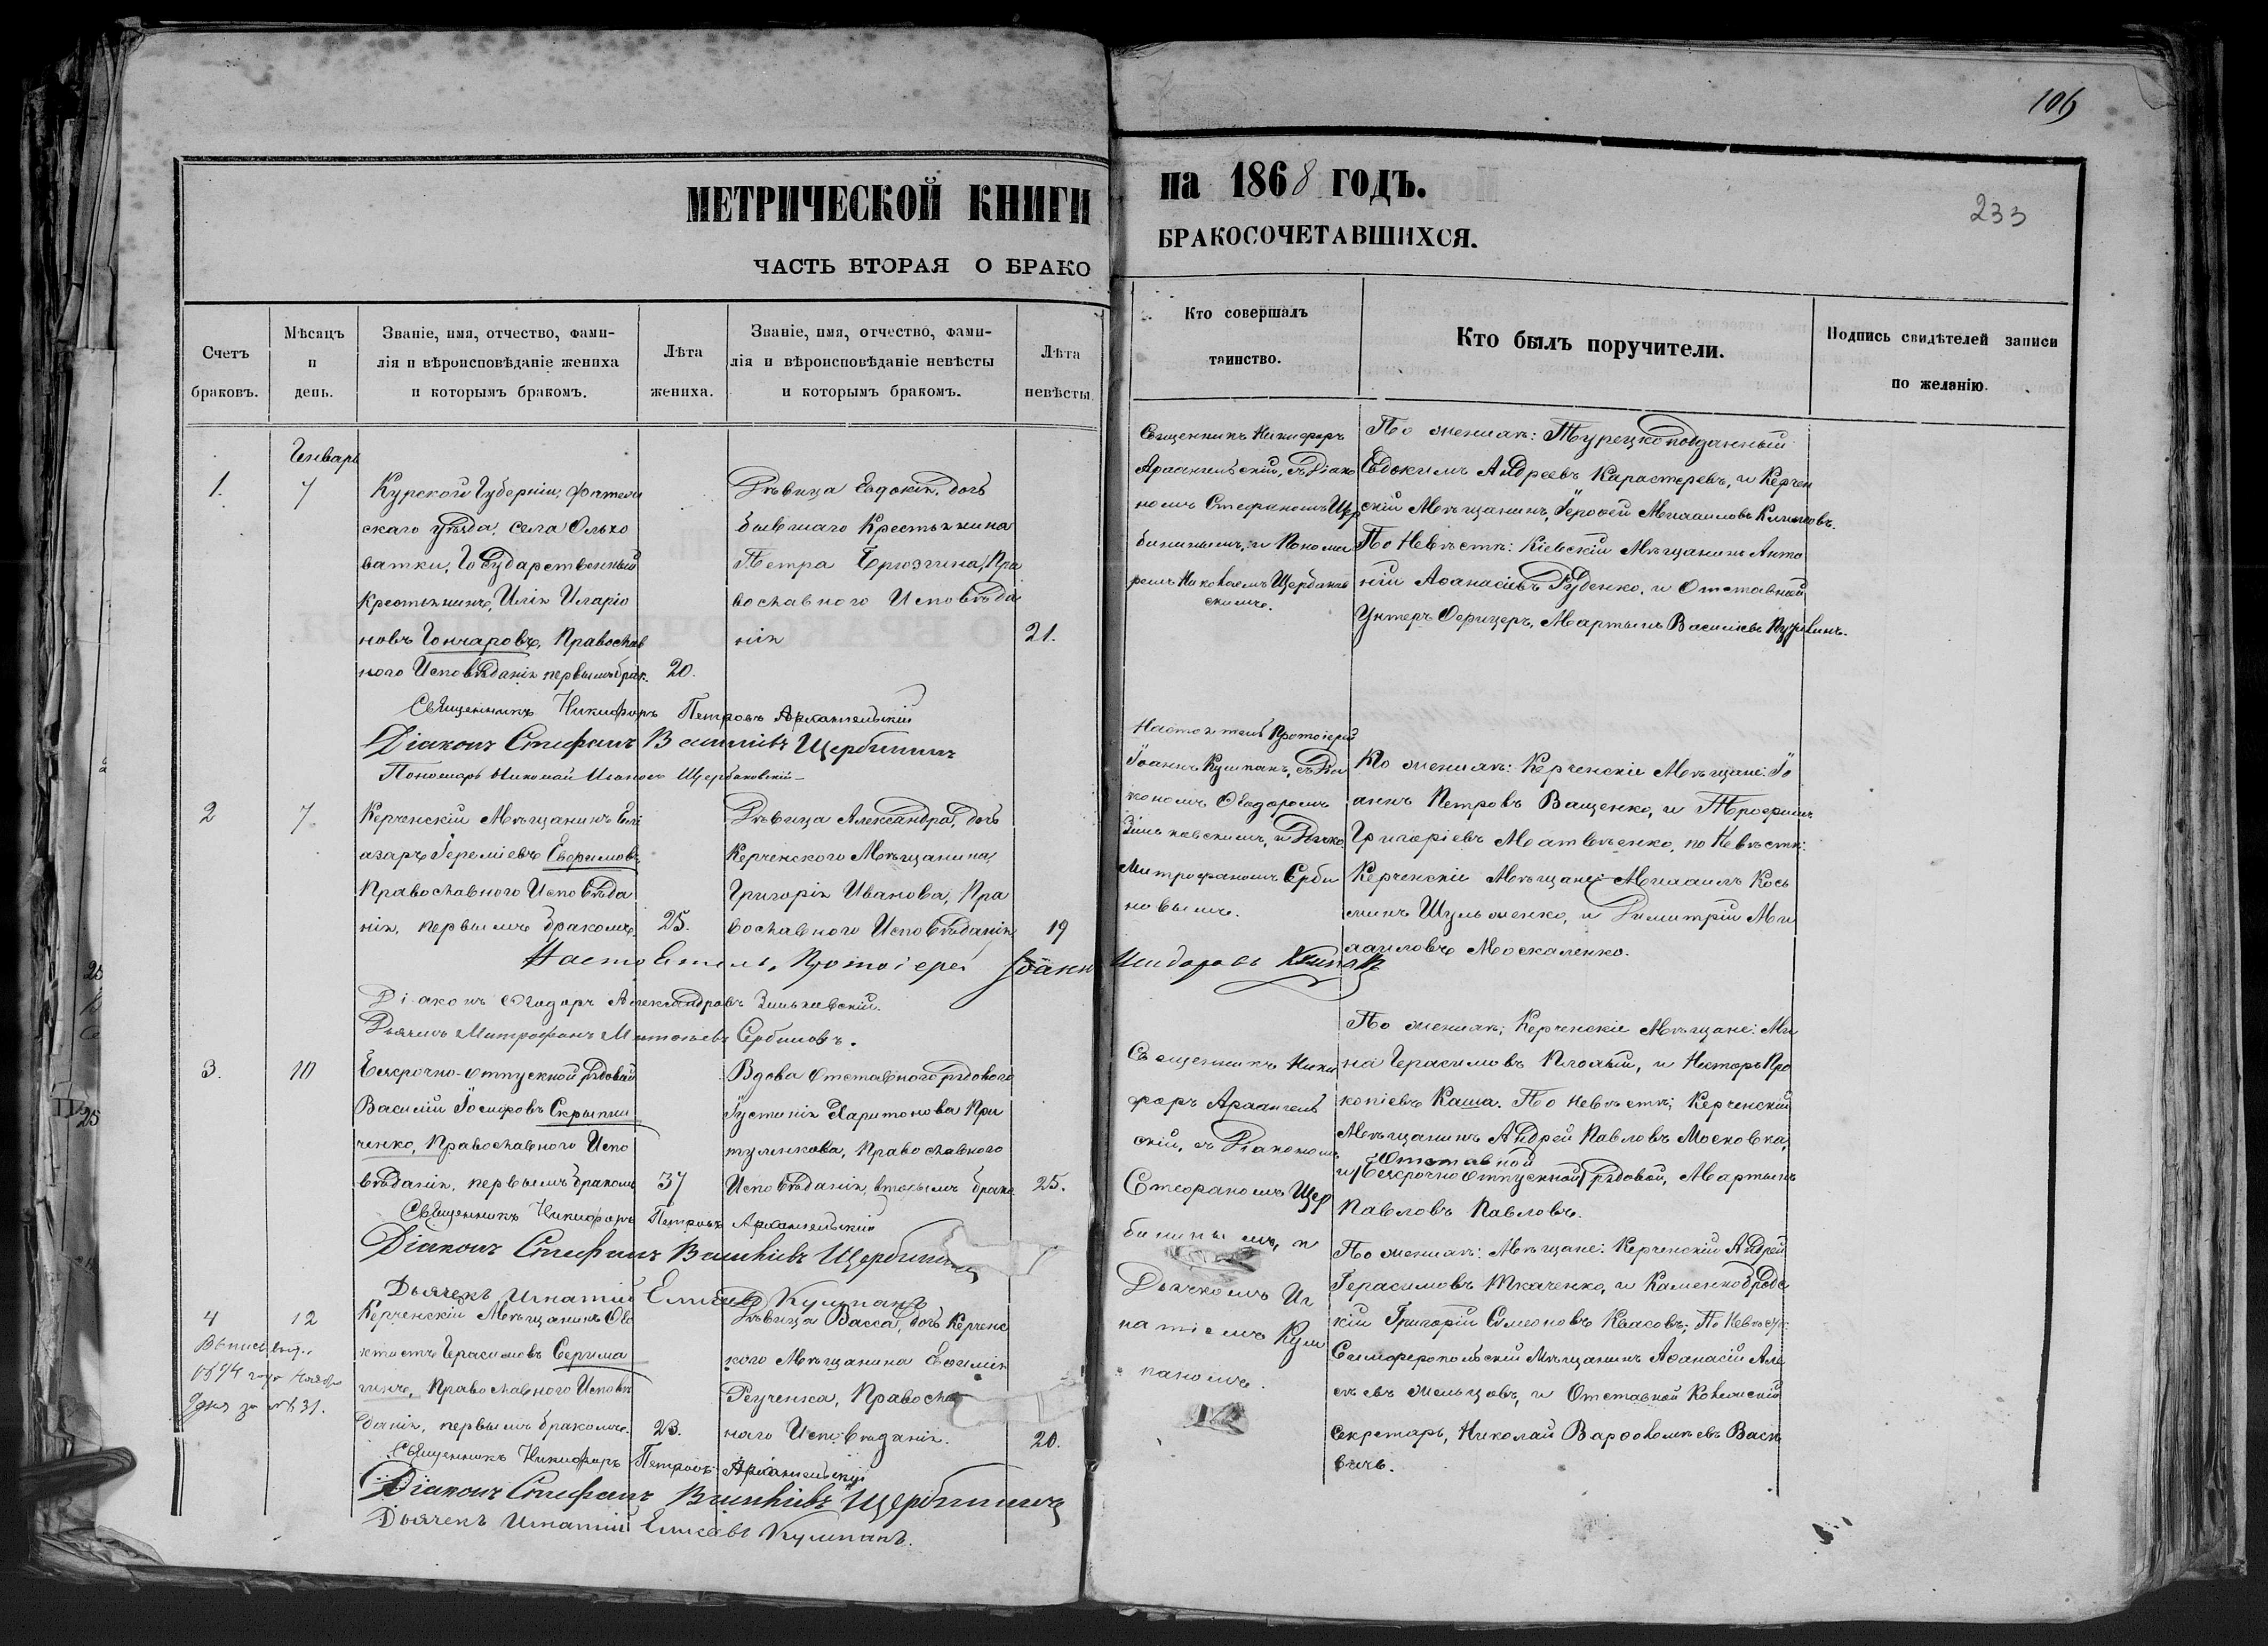 106
МЕТРИЧЕСКОЙ КНИГИ
на 1868 годъ.
233
ЧАСТЬ ВТОРАЯ О БРАКО
БРАКОСОЧЕТАВШИХСЯ.
Счетъ
браковъ.
Мѣсяцъ
и
день.
Званіе, имя, отчество, фами-
лія и вѣроисповѣданіе жениха
и которымъ бракомъ.
Лѣта
жениха.
Званіе, имя, отчество, фами-
лія и вѣроисповѣданіе невѣсты
и которымъ бракомъ.
Лѣта
невѣсты.
Кто совершалъ
таинство.
Кто былъ поручители.
Подпись свидѣтелей записи
по желанію.
Январь
1.
7
Курской Губерніи, Фатеж
скаго уѣзда, села Ольхо
ватки, Государственный
Крестьянинъ, Илія Иларіо
новъ Гончаровъ, Православ
ного Исповѣданія первымъ брак.
20.
Дѣвица Евдокія, дочь
бывшаго Крестьянина
Петра Брюзгина, Пра
вославного Исповѣда
нія
21.
Священникъ Никифоръ
Архангельскій, съ Діако
номъ Стефаномъ Щер
бининымъ, и Понома
ремъ Николаемъ Щербаков
скимъ.
По женихѣ: Турецкоподданный
Евдокимъ Андреевъ Карастеревъ, и Керчен
скій Мѣщанинъ, Іерофей Михаиловъ Климовъ.
По Невѣстѣ: Кіевскій Мѣщанинъ Анто
ній Аѳанасіевъ Руденко, и Отставной
Унтеръ Офицеръ, Мартынъ Василіевъ
Священникъ Никифоръ Петровъ Архангельскій
Діаконъ Стефанъ Василіевъ Щербининъ
Пономарь Николай Ивановъ Щербаковскій
2
7
Керченскій Мѣщанинъ Елі
азаръ Іереміевъ
Православного Исповѣда
нія, первымъ бракомъ,
25.
Дѣвица Александра, дочь
Керченского Мѣщанина,
Григорія Иванова, Пра
вославного Исповѣданія
19
Настоятель Протоіерей
Іоаннъ Кумпанъ, съ Діа
кономъ Ѳеодоромъ
Зиньковскимъ, и Дьячко
Митрофаномъ Серби
новымъ.
По женихѣ: Керченскіе Мѣщане: Іо
аннъ Петровъ Ващенко, и Трофимъ
Григоріевъ Матвѣенко, по Невѣстѣ:
Керченскіе Мѣщане: Михаилъ Кось
минъ Шульженко, и Димитрій Ми
хаиловъ Москаленко.
Настоятель, Протоіерей Іоаннъ Исидоровъ
Діаконъ Ѳеодоръ Александровъ Зиньковскій.
Дьячекъ Митрофанъ Сербиновъ.
3.
10
Безсрочно-отпускной рядовой
Василій Іосифовъ Скрыпни
ченко, Православного Испо
вѣданія, первымъ бракомъ
37
Вдова Отставного рядового
Іустинія Харитонова При
тулякова, Православного
Исповѣданія, вторымъ брако.
25.
Священникъ Ники
форъ Архангель
скій, съ Діакономъ
Стефаномъ Щер
бининымъ, и
Дьячкомъ Иг
натіемъ Кум
паномъ.
По женихѣ; Керченскіе Мѣщане: Ми
на Герасимовъ Плохый, и Несторъ Про
копіевъ Каша. По невѣстѣ; Керченскій
Мѣщанинъ Андрей Павловъ Московка,
Отставной
и Безсрочно отпускной рядовой, Мартынъ
Павловъ Павловъ.
Священникъ Никифоръ Петровъ Архангельскій
Діаконъ Стефанъ Василіевъ Щербининъ
Дьячекъ Игнатій Елисеевъ Кумпанъ
4
12
Керченскій Мѣщанинъ Ѳео
ктистъ Герасимовъ Серма
гинъ, Православного Исповѣ
данія, первымъ бракомъ.
23.
Дѣвица Васса, дочь Керченс
кого Мѣщанина Евѳимія
Реученка, Правосла
наго Исповѣданія.
20.
1874 года
за № 31.
По женихѣ: Мѣщане: Керченскій Андрей
Герасимовъ Ткаченко, и Каменкобродс
кій Григорій Симеоновъ Квасовъ; По Невѣстѣ
Симферопольскій Мѣщанинъ Аѳанасій Але
ксѣевъ Жельцовъ, и Отставной Колежскій
Секретарь, Николай Варѳоломѣевъ Васи
вичъ.
Священникъ Никифоръ Петровъ Архангельскій
Діаконъ Стефанъ Василіевъ Щербининъ
Дьячекъ Игнатій Елисеевъ Кумпанъ.